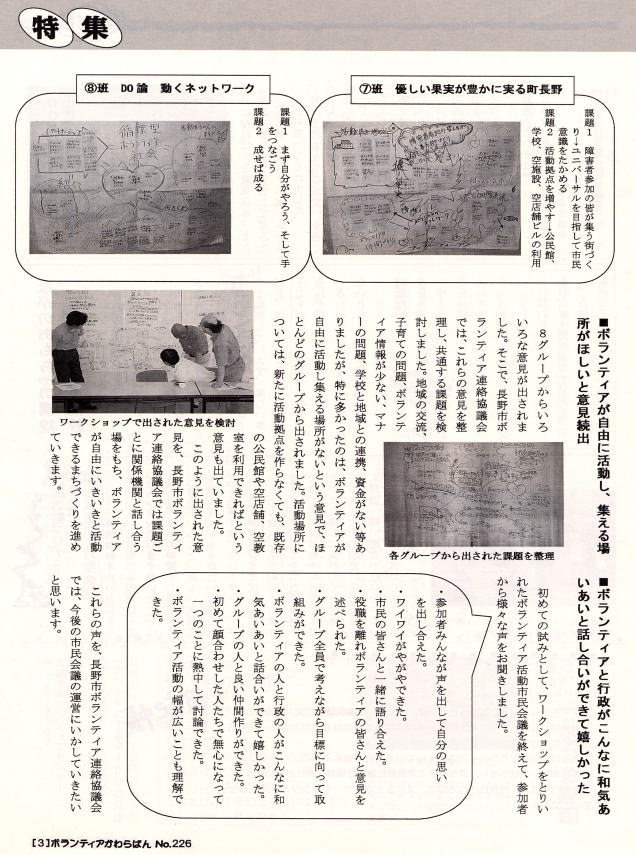 特集
⑦班　優しい果実が豊かに実る町長野
課題１　障害者参加の皆が集う街づく
り→ユニバーサルを目指して市民
意識をたかめる
課題２　活動拠点を増やす→公民館、
学校、空施設、空店舗ビルの利用
⑧班　DO論　動くネットワーク
課題１　まず自分がやろう、そして手
をつなごう
課題２　成せば成る
■ボランティアが自由に活動し、集える場
所がほしいと意見続出
８グループからいろ
いろな意見が出されま
した。そこで、長野市ボ
ランティア連絡協議会
では、これらの意見を整
理し、共通する課題を検
討しました。地域の交流、
子育ての問題、ボランテ
ィア情報が少ない、マナ
ーの問題、学校と地域との連携、資金がない等あ
りましたが、特に多かったのは、ボランティアが
自由に活動し集える場所がないという意見で、ほ
とんどのグループから出されました。活動場所に
ついては、新たに活動拠点を作らなくても、既存
の公民館や空店舗、空教
室を利用できればという
意見も出ていました。
このように出された意
見を、長野市ボランティ
ア連絡協議会では課題ご
とに関係機関と話し合う
場をもち、ボランティア
が自由にいきいきと活動
できるまちづくりを進め
ていきます。
ワークショップで出された意見を検討
各グループから出された課題を整理
■ボランティアと行政がこんなに和気あ
いあいと話し合いができて嬉しかった
初めての試みとして、ワークショップをとりい
れたボランティア活動市民会議を終えて、参加者
から様々な声をお聞きしました。
・参加者みんなが声を出して自分の思い
を出し合えた。
・ワイワイがやがやできた。
・市民の皆さんと一緒に語り合えた。
・役職を離れボランティアの皆さんと意見を
述べられた。
・グループ全員で考えながら目標に向って取
組みができた。
・ボランティアの人と行政の人がこんなに和
気あいあいと話合いができて嬉しかった。
・グループの人と良い仲間作りができた。
・初めて顔合わせした人たちで無心になって
一つのことに熱中して討論できた。
・ボランティア活動の幅が広いことも理解で
きた。
これらの声を、長野市ボランティア連絡協議会
では、今後の市民会議の運営にいかしていきたい
と思います。
[3]ボランティアかわらばん No.226